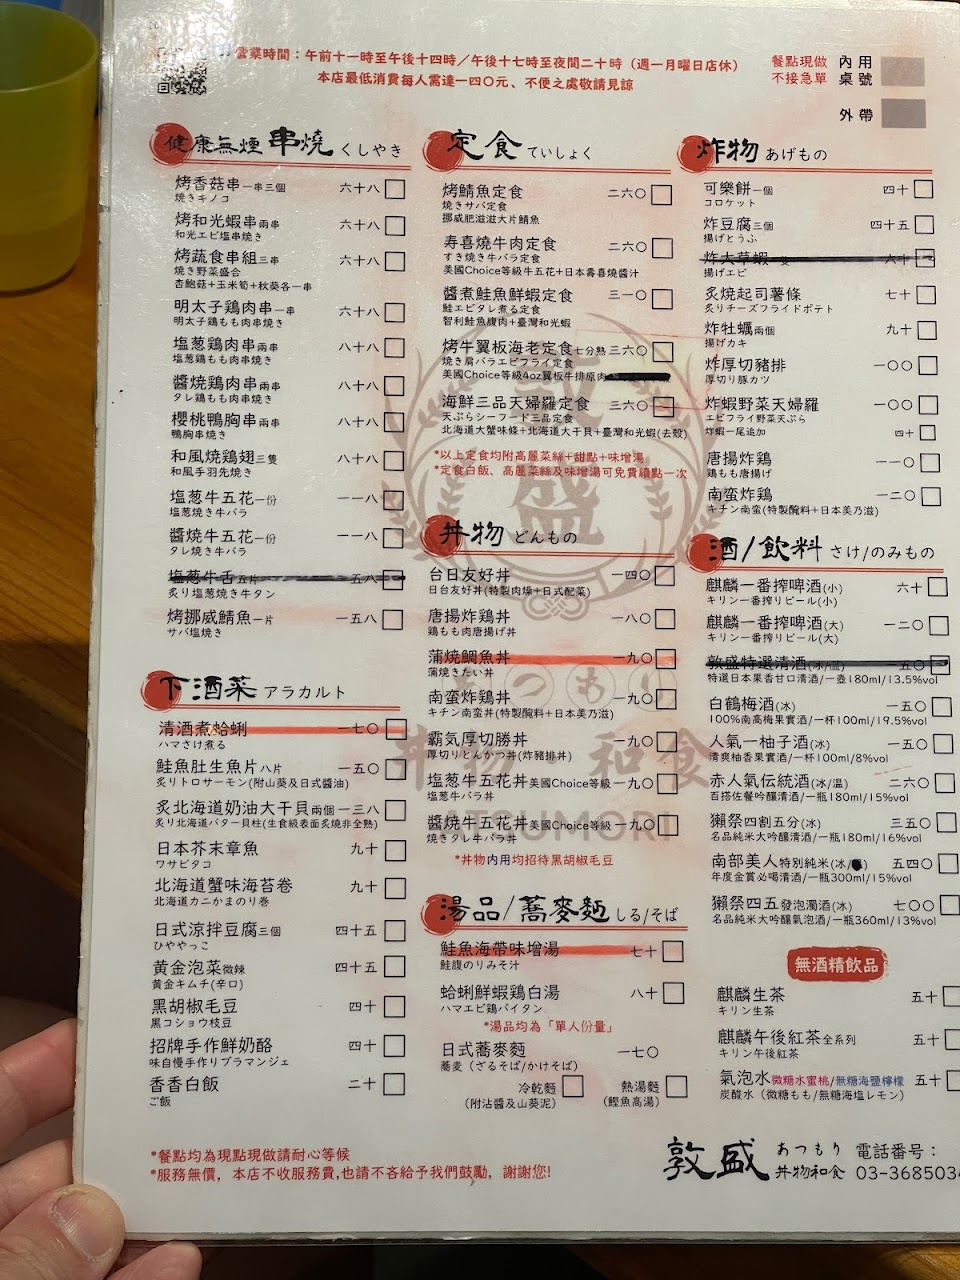 營業時間：午前十一時至午後十四時／午後十七時至夜間二十時（週一月曜日店休）
本店最低消費每人需達一四〇元、不便之處敬請見諒
餐點現做
不接急單
內用
桌號
外帶
健康無煙串燒 くしやき
烤香菇串一串三個 六十八
焼きキノコ
烤和光蝦串兩串 六十八
和光エビ塩串焼き
烤蔬食串組三串 六十八
焼き野菜盛合
杏鮑菇+玉米筍+秋葵各一串
明太子鶏肉串一串 六十八
明太子鶏もも肉串焼き
塩葱鶏肉串兩串 八十八
塩葱鶏もも肉串焼き
醬燒鶏肉串兩串 八十八
タレ鶏もも肉串焼き
櫻桃鴨胸串兩串 八十八
鴨胸串焼き
和風燒鶏翅三隻 八十八
和風手羽先焼き
塩葱牛五花一份 一一八
塩葱焼き牛バラ
醬燒牛五花一份 一一八
タレ焼き牛バラ
塩葱牛舌五片 一五八
炙り塩葱焼き牛タン
烤挪威鯖魚一片 一五八
サバ塩焼き
下酒菜 アラカルト
清酒煮蛤蜊 一七〇
ハマさけ煮る
鮭魚肚生魚片八片 一五〇
炙りトロサーモン(附山葵及日式醬油)
炙北海道奶油大干貝兩個 一三八
炙り北海道バター貝柱(生食級表面炙燒非全熟)
日本芥末章魚 九十
ワサビタコ
北海道蟹味海苔卷 九十
北海道カニかまのり巻
日式涼拌豆腐三個 四十五
ひややっこ
黃金泡菜微辣 四十五
黄金キムチ(辛口)
黑胡椒毛豆 四十
黒コショウ枝豆
招牌手作鮮奶酪 四十
味自慢手作りブラマンジェ
香香白飯 二十
ご飯
*餐點均為現點現做請耐心等候
*服務無價，本店不收服務費,也請不吝給予我們鼓勵，謝謝您!
定食 ていしょく
烤鯖魚定食 二六〇
焼きサバ定食
挪威肥滋滋大片鯖魚
寿喜燒牛肉定食 二六〇
すき焼き牛バラ定食
美國Choice等級牛五花+日本壽喜燒醬汁
醬煮鮭魚鮮蝦定食 三一〇
鮭エビタレ煮る定食
智利鮭魚腹肉+臺灣和光蝦
烤牛翼板海老定食七分熟 三六〇
焼き肩バラエビフライ定食
美國Choice等級4oz翼板牛排原肉
海鮮三品天婦羅定食 三六〇
天ぷらシーフード三品定食
北海道大蟹味條+北海道大干貝+臺灣和光蝦(去殼)
*以上定食均附高麗菜絲+甜點+味增湯
*定食白飯、高麗菜絲及味增湯可免費續點一次
丼物 どんもの
台日友好丼 一四〇
日台友好丼(特製肉燥+日式配菜)
唐揚炸鶏丼 一八〇
鶏もも肉唐揚げ丼
蒲燒鯛魚丼 一九〇
蒲焼きたい丼
南蛮炸鶏丼 一九〇
キチン南蛮丼(特製醃料+日本美乃滋)
霸気厚切勝丼 一九〇
厚切りとんかつ丼(炸豬排丼)
塩葱牛五花丼美國Choice等級 一九〇
塩葱牛バラ丼
醬燒牛五花丼美國Choice等級 一九〇
焼きタレ牛バラ丼
*丼物内用均招待黑胡椒毛豆
湯品/蕎麥麵 しる/そば
鮭魚海帶味增湯 七十
鮭腹のりみそ汁
蛤蜊鮮蝦鶏白湯 八十
ハマエビ鶏パイタン
*湯品均為「單人份量」
日式蕎麥麵 一七〇
蕎麦(ざるそば/かけそば)
冷乾麵 熱湯麵
(附沾醬及山葵泥) (鰹魚高湯)
炸物 あげもの
可樂餅一個 四十
コロケット
炸豆腐三個 四十五
揚げとうふ
炸大草蝦一隻 六十
揚げエビ
炙燒起司薯條 七十
炙りチーズフライドポテト
炸牡蠣兩個 九十
揚げカキ
炸厚切豬排 一〇〇
厚切り豚カツ
炸蝦野菜天婦羅 一〇〇
エビフライ野菜天ぷら
炸蝦一尾追加 四十
唐揚炸鶏 一一〇
鶏もも唐揚げ
南蛮炸鶏 一二〇
キチン南蛮(特製醃料+日本美乃滋)
酒/飲料 さけ/のみもの
麒麟一番搾啤酒(小) 六十
キリン一番搾りビール(小)
麒麟一番搾啤酒(大) 一二〇
キリン一番搾りビール(大)
敦盛特選清酒(冰/溫) 一五〇
特選日本果香甘口清酒/一壺180ml/13.5%vol
白鶴梅酒(冰) 一五〇
100%南高梅果實酒/一杯100ml/19.5%vol
人氣一柚子酒(冰) 一五〇
清爽柚香果實酒/一杯100ml/8%vol
赤人氣伝統酒(冰/溫) 二六〇
百搭佐餐吟釀清酒/一瓶180ml/15%vol
獺祭四割五分(冰) 三五〇
名品純米大吟釀清酒/一瓶180ml/16%vol
南部美人特別純米(冰/) 五四〇
年度金賞必喝清酒/一瓶300ml/15%vol
獺祭四五發泡濁酒(冰) 七〇〇
名品純米大吟釀氣泡酒/一瓶360ml/13%vol
無酒精飲品
麒麟生茶 五十
キリン生茶
麒麟午後紅茶全系列 五十
キリン午後紅茶
氣泡水微糖水蜜桃/無糖海鹽檸檬 五十
炭酸水（微糖もも/無糖海塩レモン）
敦盛 あつもり
丼物和食
電話番号：
03-368503
敦盛
あつもり
丼物 和食
TSUMORI